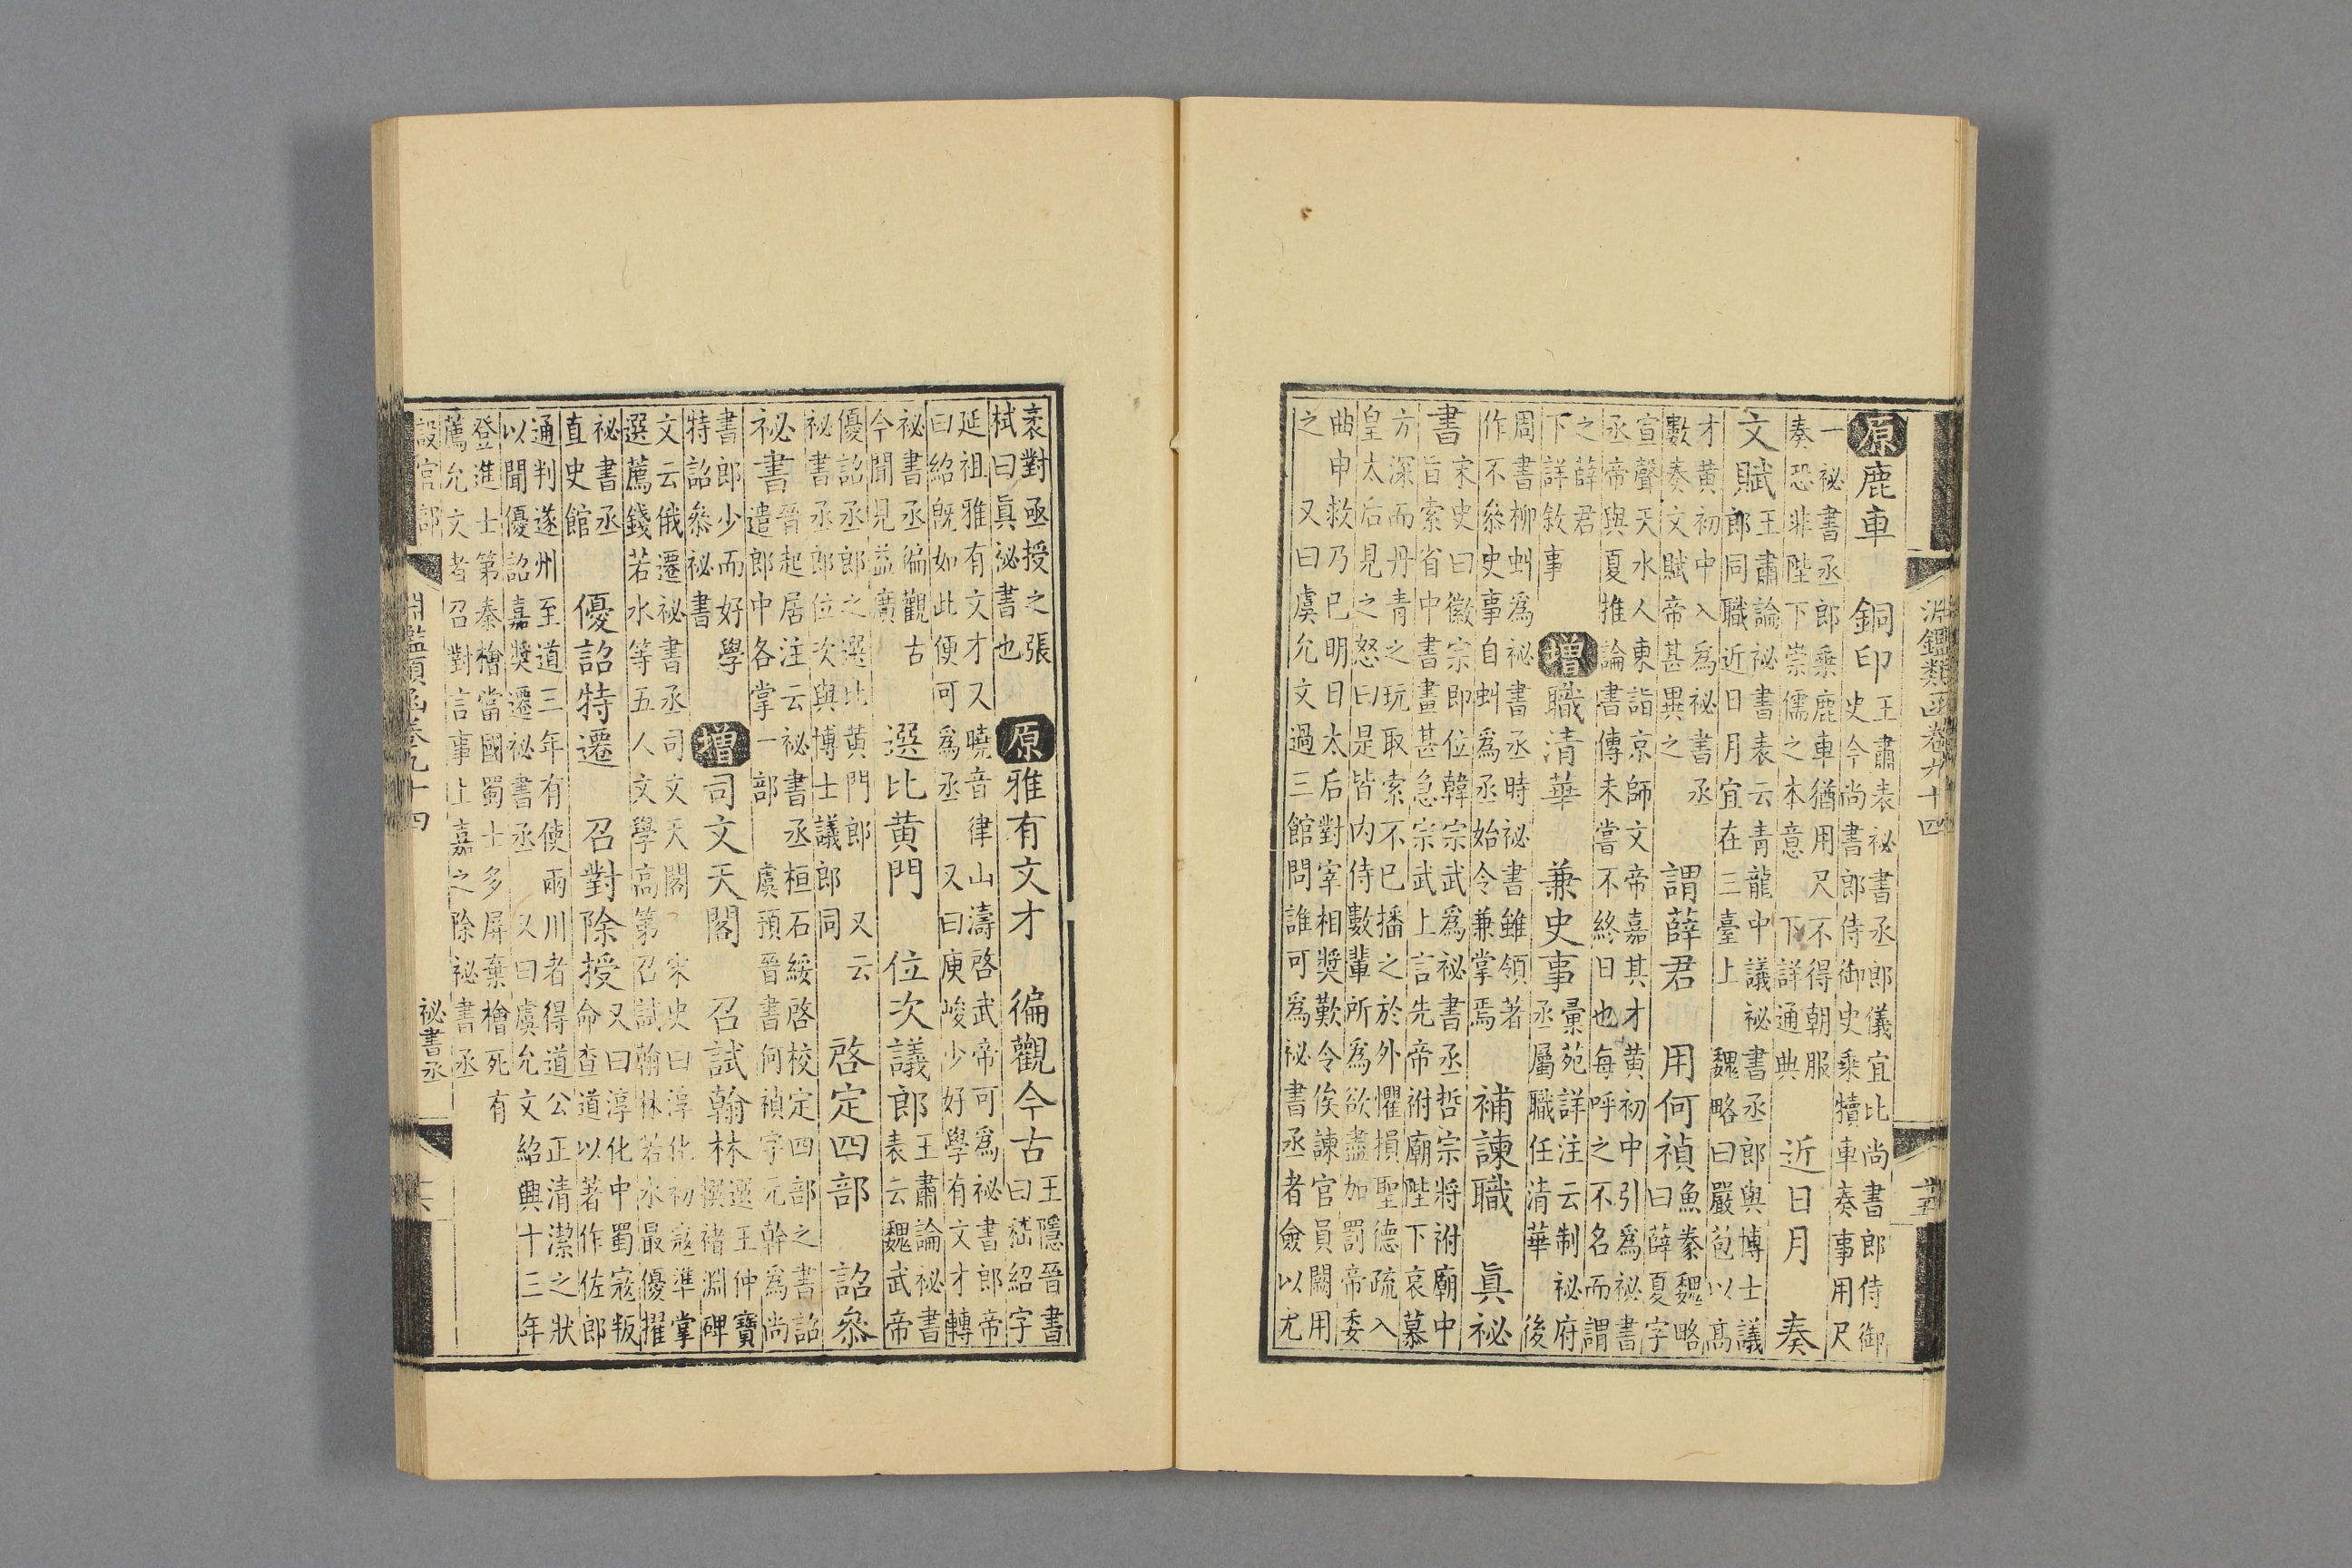 淵鑑類函卷九十四
十五
原鹿車　銅印
王肅表祕書丞郎儀宜比尚書郎侍御
史今尚書郎侍御史乘犢車奏事用尺
一祕書丞郎乘鹿車猶用尺不得朝服
奏恐非陛下崇儒之本意　下詳通典
近日月　奏
文賦
王肅論祕書表云青龍中議祕書丞郎與博士議
郎同職近日月宜在三臺上　魏略曰嚴苞以高
才黃初中入為祕書丞
數奏文賦帝甚異之
謂薛君　用何禎
魚豢魏略
曰薛夏字
宣聲天水人東詣京師文帝嘉其才黃初中引為祕書
丞帝與夏推論書傳未嘗不終日也每呼之不名而謂
之薛君
下詳敘事
增職清華　兼史事
彙苑詳注云制祕府
丞屬職任清華　後
周書柳虯為祕書丞時祕書雖領著
作不叅史事自虯為丞始令兼掌焉
補諫職　眞祕
書
宋史曰徽宗即位韓宗武為祕書丞哲宗將祔廟中
旨索省中書畫甚急宗武上言先帝祔廟陛下哀慕
方深而丹青之玩取索不已播之於外懼損聖德疏入
皇太后見之怒曰是皆內侍數輩所為欲盡加罰帝委
曲申救乃已明日太后對宰相奬歎令俟諫官員闕用
之　又曰虞允文過三館問誰可為祕書丞者僉以尤
袤對亟授之張
栻曰眞祕書也
原雅有文才　徧觀今古
王隱晉書
曰嵇紹字
延祖雅有文才又曉音律山濤啓武帝可為祕書郎帝
曰紹旣如此便可為丞　又曰庾峻少好學有文才轉
祕書丞徧觀古
今聞見益廣
選比黃門　位次議郎
王肅論祕書
表云魏武帝
優詔丞郎之選比黃門郎　又云
祕書丞郎位次與博士議郎同
啓定四部　詔叅
祕書
晉起居注云祕書丞桓石綏啓校定四部之書詔
遣郎中各掌一部　虞預晉書何禎字元幹為尚
書郎少而好學
特詔叅祕書
增司文天閣　召試翰林
選王仲寶
撰褚淵碑
文云俄遷祕書丞司文天閣　宋史曰淳化初寇準掌
選薦錢若水等五人文學高第召試翰林若水最優擢
祕書丞
直史館
優詔特遷　召對除授
又曰淳化中蜀寇叛
命查道以著作佐郎
通判遂州至道三年有使兩川者得道公正清潔之狀
以聞優詔嘉奬遷祕書丞　又曰虞允文紹興十三年
登進士第秦檜當國蜀士多屏棄檜死有
薦允文者召對言事上嘉之除祕書丞
設官部
淵鑑類函卷九十四
祕書丞
十六